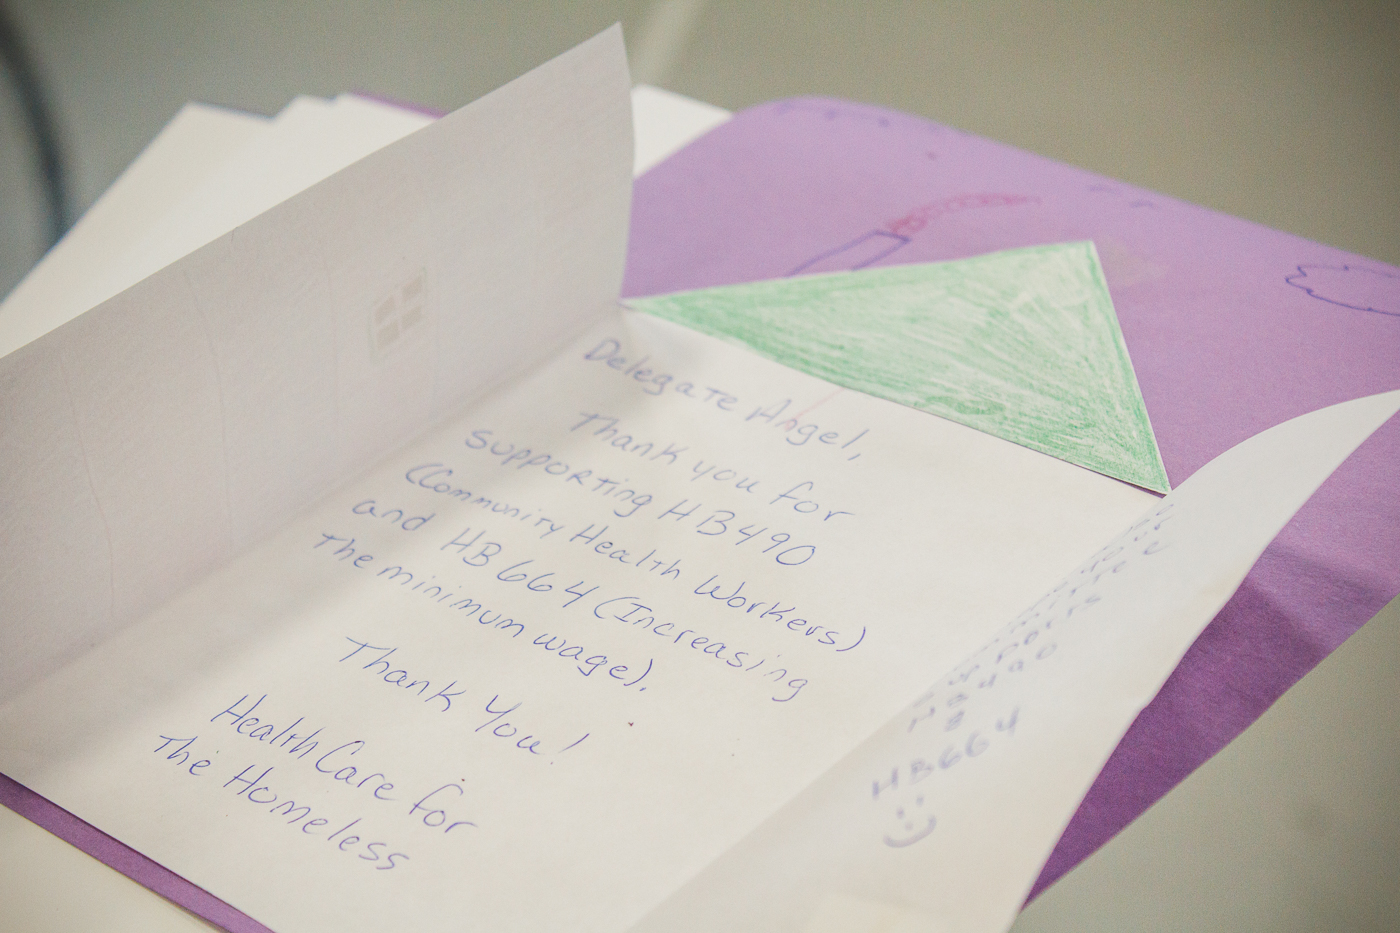 Delegate Angel,
Thank you for
supporting HB490
(Community Health Workers)
and HB664 (Increasing
the minimum wage).
Thank You!
Health Care for
The Homeless
HB490
HB664